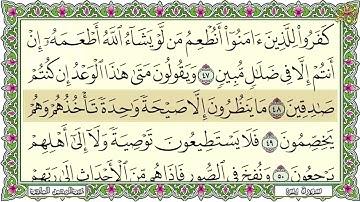 كَفَرُوا۟ لِلَّذِينَ ءَامَنُوٓا۟ أَنُطْعِمُ مَن لَّوْ يَشَآءُ ٱللَّهُ أَطْعَمَهُۥٓ إِنْ
أَنتُمْ إِلَّا فِى ضَلَـٰلٍ مُّبِينٍ ٤٧ وَيَقُولُونَ مَتَىٰ هَـٰذَا ٱلْوَعْدُ إِن كُنتُمْ
صَـٰدِقِينَ ٤٨ مَا يَنظُرُونَ إِلَّا صَيْحَةً وَٰحِدَةً تَأْخُذُهُمْ وَهُمْ
يَخِصِّمُونَ ٤٩ فَلَا يَسْتَطِيعُونَ تَوْصِيَةً وَلَآ إِلَىٰٓ أَهْلِهِمْ
يَرْجِعُونَ ٥٠ وَنُفِخَ فِى ٱلصُّورِ فَإِذَا هُم مِّنَ ٱلْأَجْدَاثِ إِلَىٰ رَبِّهِمْ
سورة يس